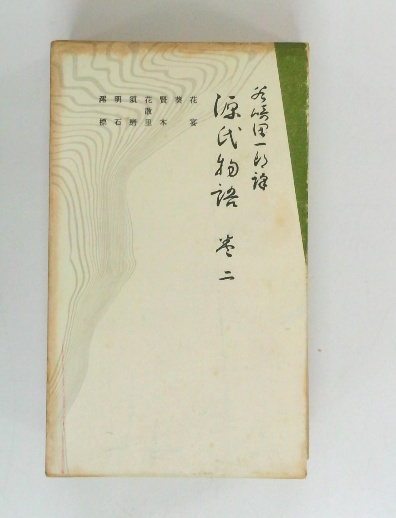 谷崎潤一郎譯
源氏物語 巻二
花宴
葵
賢木
花散里
須磨
明石
澪標